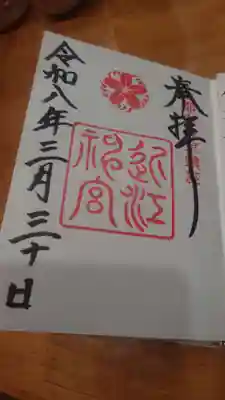 奉拝
近江神宮
令和八年三月三十日